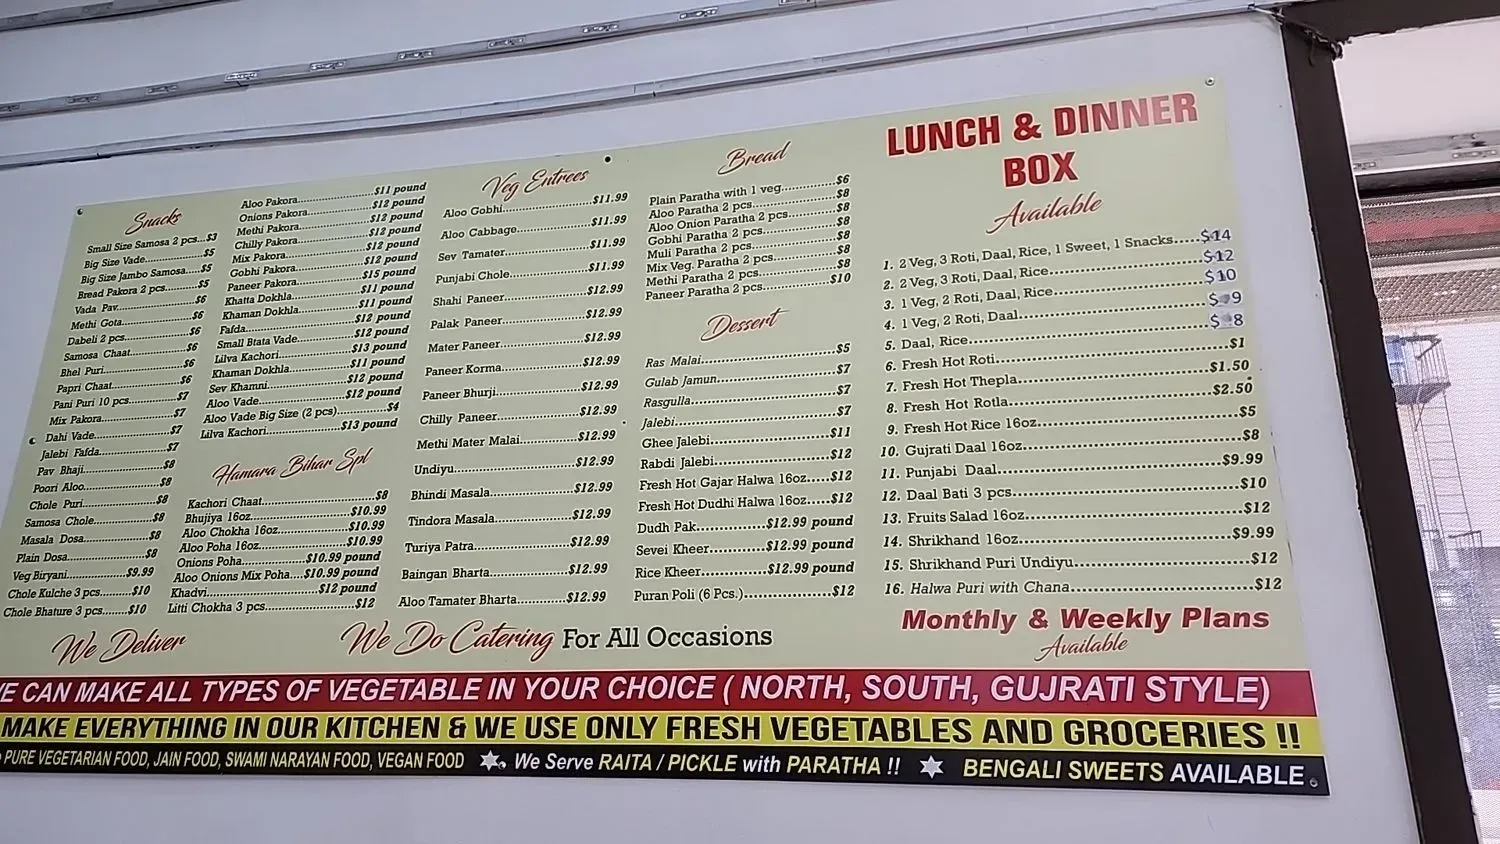 Snacks
Small Size Samosa 2 pcs...$3
Big Size Vade...$5
Big Size Jambo Samosa...$5
Bread Pakora 2 pcs...$5
Vada Pav...$6
Methi Gota...$6
Dabeli 2 pcs...$6
Samosa Chaat...$6
Bhel Puri...$6
Papri Chaat...$6
Pani Puri 10 pcs...$7
Mix Pakora...$7
Dahi Vade...$7
Jalebi Fafda...$7
Pav Bhaji...$8
Poori Aloo...$8
Chole Puri...$8
Samosa Chole...$8
Masala Dosa...$8
Plain Dosa...$8
Veg Biryani...$9.99
Chole Kulche 3 pcs...$10
Chole Bhature 3 pcs...$10
Aloo Pakora...$11 pound
Onions Pakora...$12 pound
Methi Pakora...$12 pound
Chilly Pakora...$12 pound
Mix Pakora...$12 pound
Gobhi Pakora...$12 pound
Paneer Pakora...$15 pound
Khatta Dokhla...$11 pound
Khaman Dokhla...$11 pound
Fafda...$12 pound
Small Btata Vade...$12 pound
Lilva Kachori...$13 pound
Khaman Dokhla...$11 pound
Sev Khamni...$12 pound
Aloo Vade...$12 pound
Aloo Vade Big Size (2 pcs)...$4
Lilva Kachori...$13 pound
Hamara Bihar Spl
Kachori Chaat...$8
Bhujiya 16oz...$10.99
Aloo Chokha 16oz...$10.99
Aloo Poha 16oz...$10.99
Onions Poha...$10.99 pound
Aloo Onions Mix Poha...$10.99 pound
Khadvi...$12 pound
Litti Chokha 3 pcs...$12
Veg Entrees
Aloo Gobhi...$11.99
Aloo Cabbage...$11.99
Sev Tamater...$11.99
Punjabi Chole...$11.99
Shahi Paneer...$12.99
Palak Paneer...$12.99
Mater Paneer...$12.99
Paneer Korma...$12.99
Paneer Bhurji...$12.99
Chilly Paneer...$12.99
Methi Mater Malai...$12.99
Undiyu...$12.99
Bhindi Masala...$12.99
Tindora Masala...$12.99
Turiya Patra...$12.99
Baingan Bharta...$12.99
Aloo Tamater Bharta...$12.99
Bread
Plain Paratha with 1 veg...$6
Aloo Paratha 2 pcs...$8
Aloo Onion Paratha 2 pcs...$8
Gobhi Paratha 2 pcs...$8
Muli Paratha 2 pcs...$8
Mix Veg. Paratha 2 pcs...$8
Methi Paratha 2 pcs...$8
Paneer Paratha 2 pcs...$10
Dessert
Ras Malai...$5
Gulab Jamun...$7
Rasgulla...$7
Jalebi...$7
Ghee Jalebi...$11
Rabdi Jalebi...$12
Fresh Hot Gajar Halwa 16oz...$12
Fresh Hot Dudhi Halwa 16oz...$12
Dudh Pak...$12.99 pound
Sevei Kheer...$12.99 pound
Rice Kheer...$12.99 pound
Puran Poli (6 Pcs.)...$12
LUNCH & DINNER
BOX
Available
1. 2 Veg, 3 Roti, Daal, Rice, 1 Sweet, 1 Snacks...$14
2. 2 Veg, 3 Roti, Daal, Rice...$12
3. 1 Veg, 2 Roti, Daal, Rice...$10
4. 1 Veg, 2 Roti, Daal...$9
5. Daal, Rice...$8
6. Fresh Hot Roti...$1
7. Fresh Hot Thepla...$1.50
8. Fresh Hot Rotla...$2.50
9. Fresh Hot Rice 16oz...$5
10. Gujrati Daal 16oz...$8
11. Punjabi Daal...$9.99
12. Daal Bati 3 pcs...$10
13. Fruits Salad 16oz...$12
14. Shrikhand 16oz...$9.99
15. Shrikhand Puri Undiyu...$12
16. Halwa Puri with Chana...$12
Monthly & Weekly Plans
Available
We Deliver
We Do Catering For All Occasions
CAN MAKE ALL TYPES OF VEGETABLE IN YOUR CHOICE ( NORTH, SOUTH, GUJRATI STYLE)
MAKE EVERYTHING IN OUR KITCHEN & WE USE ONLY FRESH VEGETABLES AND GROCERIES !!
PURE VEGETARIAN FOOD, JAIN FOOD, SWAMI NARAYAN FOOD, VEGAN FOOD We Serve RAITA / PICKLE with PARATHA !! BENGALI SWEETS AVAILABLE